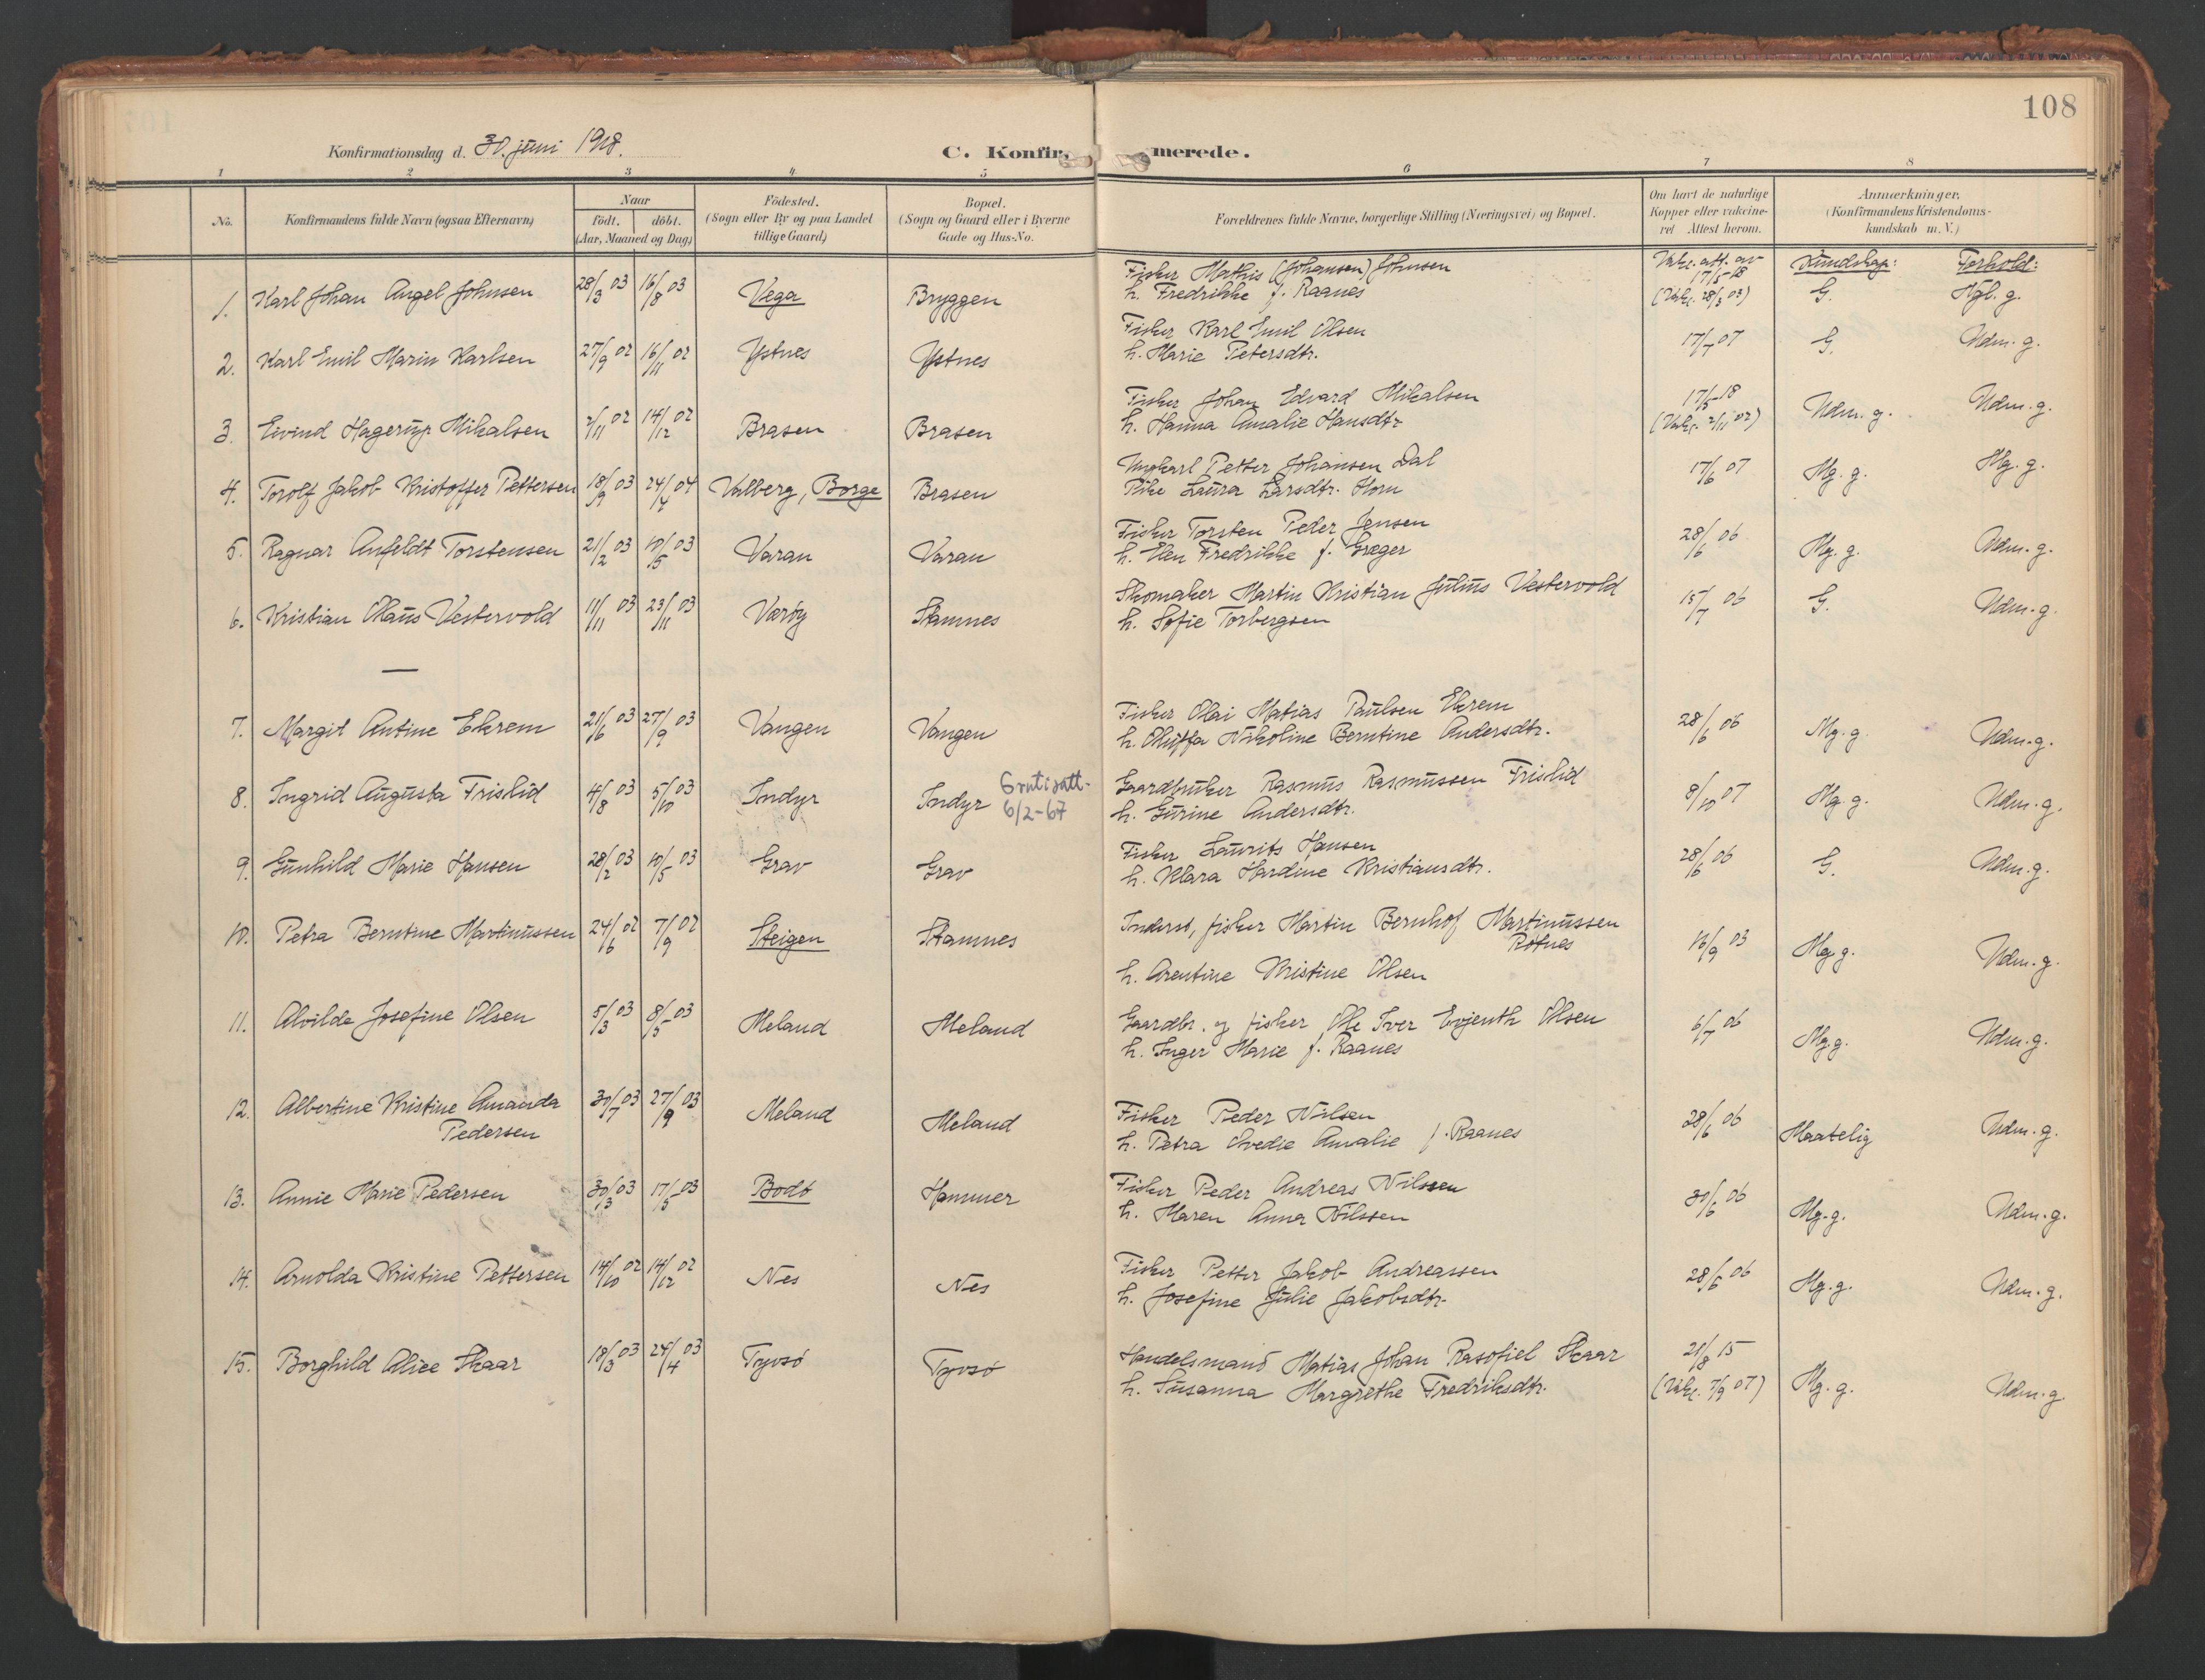 108
Konfirmationsdag d. 30. juni 1918.
C. Konfirmerede.
1 2 3 4 5 6 7 8
No.
Konfirmandens fulde Navn (ogsaa Efternavn)
Naar
födt. döbt.
(Aar, Maaned og Dag)
Födested.
(Sogn eller By og paa Landet
tillige Gaard)
Bopæl.
(Sogn og Gaard eller i Byerne
Gade og Hus-No.
Forældrenes fulde Navne, borgerlige Stilling (Næringsvei) og Bopæl.
Om havt de naturlige
Kopper eller vakcine-
ret Attest herom.
Anmærkninger.
(Konfirmandens Kristendoms-
kundskab m. V.)
Kundskap: Forhold:
1. Karl Johan Angel Johnsen 28/3 03 16/8 03 Vega Bryggen Fisker Mathis (Johansen) Johnsen Vakc. att. av 17/5 18
h. Fredrikke f. Raanes (Vakc. 28/3 03) G. Mgl. g.
2. Karl Emil Marin Karlsen 27/9 02 16/11 02 Ystnes Ystnes Fisker Karl Emil Olsen 17/7 07 G. Udm. g.
h. Marie Petersdtr.
3. Eivind Hagerup Mikalsen 2/11 02 14/12 02 Brasen Brasen Fisker Johan Edvard Mikalsen 17/5 18 Udm. g. Udm. g.
h. Hanna Amalie Hansdtr (Vakc. 2/11 07)
4. Torolf Jakob Kristoffer Pettersen 18/9 03 24/4 04 Valberg, Borge Brasen Ungkarl Petter Johansen Dal 17/6 07 Mg. g. Mg. g.
Pike Laura Larsdtr. Horn
5. Ragnar Anfeldt Torstensen 21/2 03 10/5 03 Varan Varan Fisker Torsten Peder Jensen 28/6 06 Mg. g. Udm. g.
h. Elen Fredrikke f. Græger
6. Kristian Olaus Vestervold 11/11 03 23/11 03 Værøy Stamnes Skomaker Martin Kristian Julius Vestervold 15/7 06 G. Udm. g.
h. Sofie Torbergsen
—
7. Margit Antine Ekrem 21/6 03 27/9 03 Vangen Vangen Fisker Olai Matias Paulsen Ekrem 28/6 06 Mg. g. Udm. g.
h. Oluffa Nikoline Berntine Andersdtr.
8. Ingrid Augusta Frislid 4/8 03 5/10 03 Indyr Indyr Gratisatt. Gaardbruker Rasmus Rasmussen Frislid 8/10 07 Mg. g. Udm. g.
6/2-67 h. Gurine Andersdtr.
9. Gunhild Marie Hansen 28/2 03 10/5 03 Grav Grav Fisker Laurits Hansen 28/6 06 G. Udm. g.
h. Klara Hardine Kristiansdtr.
10. Petra Berntine Martinussen 24/6 02 7/9 02 Steigen Stamnes Inderst, fisker Martin Bernhof Martinussen
Røtnes 16/9 03 Mg. g. Udm. g.
h. Arentine Kristine Olsen
11. Alvilde Josefine Olsen 5/3 03 8/5 03 Meland Meland Gaardbr. og fisker Ole Iver Evjenth Olsen 6/7 06 Mg. g. Udm. g.
h. Inger Marie f. Raanes
12. Albertine Kristine Amanda 30/7 03 27/9 03 Meland Meland Fisker Peder Nilsen 28/6 06 Maatelig Udm. g.
Pedersen h. Petra Amalie f. Raanes
13. Annie Marie Pedersen 30/3 03 17/5 03 Bodø Hammer Fisker Peder Andreas Nilssen 30/6 06 Mg. g. Udm. g.
h. Maren Anna Nilssen
14. Arnolda Kristine Pettersen 14/10 02 14/12 02 Nes Nes Fisker Petter Jakob Andreassen 28/6 06 Mg. g. Udm. g.
h. Josefine Julie Jakobsdtr.
15. Borghild Alice Skaar 18/3 03 24/4 03 Tyvsø Tyvsø Handelsmand Matias Johan Rasofiel Skaar 21/8 15 Mg. g. Udm. g.
h. Susanna Margrethe Fredriksdtr. (Vakc. 7/9 07)